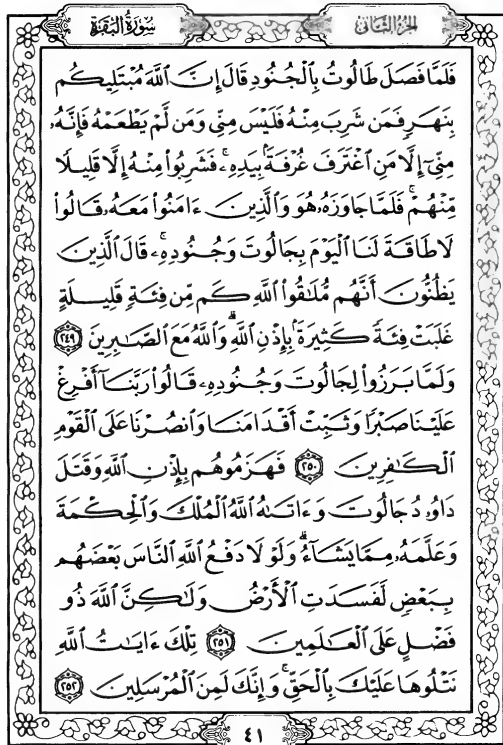 سُورَةُ البَقَرَةِ
الجُزءُ الثَّانِي
فَلَمَّا فَصَلَ طَالُوتُ بِالْجُنُودِ قَالَ إِنَّ اللَّهَ مُبْتَلِيكُم
بِنَهَرٍ فَمَن شَرِبَ مِنْهُ فَلَيْسَ مِنِّي وَمَن لَّمْ يَطْعَمْهُ فَإِنَّهُۥ
مِنِّيٓ إِلَّا مَنِ ٱغْتَرَفَ غُرْفَةَۢ بِيَدِهِۦۚ فَشَرِبُوا۟ مِنْهُ إِلَّا قَلِيلًا
مِّنْهُمْۚ فَلَمَّا جَاوَزَهُۥ هُوَ وَٱلَّذِينَ ءَامَنُوا۟ مَعَهُۥ قَالُوا۟
لَا طَاقَةَ لَنَا ٱلْيَوْمَ بِجَالُوتَ وَجُنُودِهِۦۚ قَالَ ٱلَّذِينَ
يَظُنُّونَ أَنَّهُم مُّلَٰقُوا۟ ٱللَّهِ كَم مِّن فِئَةٍ قَلِيلَةٍ
غَلَبَتْ فِئَةً كَثِيرَةَۢ بِإِذْنِ ٱللَّهِۗ وَٱللَّهُ مَعَ ٱلصَّٰبِرِينَ ٢٤٩
وَلَمَّا بَرَزُوا۟ لِجَالُوتَ وَجُنُودِهِۦ قَالُوا۟ رَبَّنَآ أَفْرِغْ
عَلَيْنَا صَبْرًا وَثَبِّتْ أَقْدَامَنَا وَٱنصُرْنَا عَلَى ٱلْقَوْمِ
ٱلْكَٰفِرِينَ ٢٥٠ فَهَزَمُوهُم بِإِذْنِ ٱللَّهِ وَقَتَلَ
دَاوُۥدُ جَالُوتَ وَءَاتَىٰهُ ٱللَّهُ ٱلْمُلْكَ وَٱلْحِكْمَةَ
وَعَلَّمَهُۥ مِمَّا يَشَآءُۗ وَلَوْلَا دَفْعُ ٱللَّهِ ٱلنَّاسَ بَعْضَهُم
بِبَعْضٍ لَّفَسَدَتِ ٱلْأَرْضُ وَلَٰكِنَّ ٱللَّهَ ذُو
فَضْلٍ عَلَى ٱلْعَٰلَمِينَ ٢٥١ تِلْكَ ءَايَٰتُ ٱللَّهِ
نَتْلُوهَا عَلَيْكَ بِٱلْحَقِّۚ وَإِنَّكَ لَمِنَ ٱلْمُرْسَلِينَ ٢٥٢
٤١